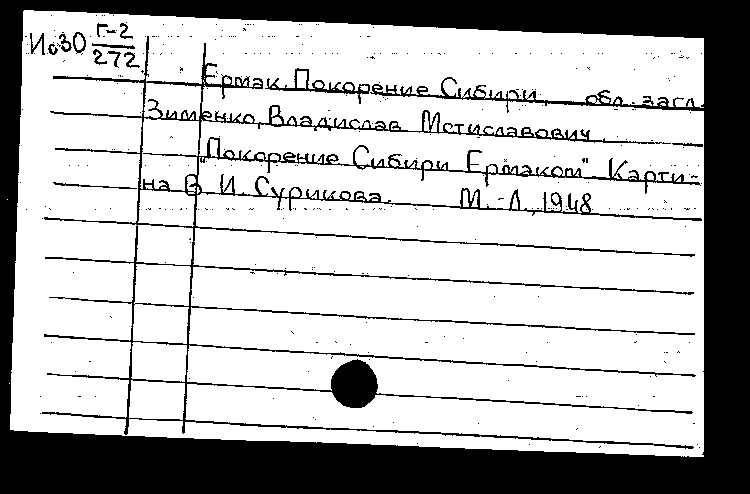 Ио30 Г-2
272
Ермак. Покорение Сибири. обл. загл.
Зименко, Владислав Мстиславович
"Покорение Сибири Ермаком". Карти-
на В. И. Сурикова. М.-Л., 1948